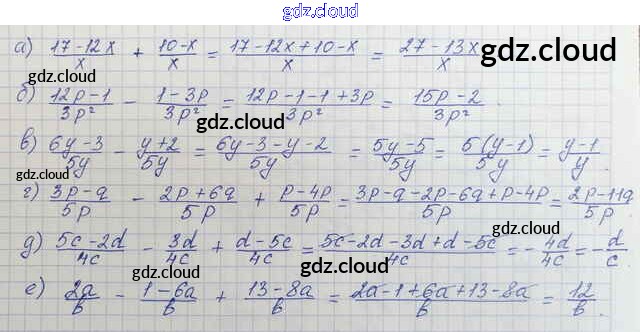 gdz.cloud
а) (17-12x)/x + (10-x)/x = (17-12x+10-x)/x = (27-13x)/x
gdz.cloud
gdz.cloud
б) (12p-1)/3p² - (1-3p)/3p² = (12p-1-1+3p)/3p² = (15p-2)/3p²
gdz.cloud
в) (6y-3)/5y - (y+2)/5y = (6y-3-y-2)/5y = (5y-5)/5y = 5(y-1)/5y = (y-1)/y
gdz.cloud
г) (3p-q)/5p - (2p+6q)/5p + (p-4p)/5p = (3p-q-2p-6q+p-4p)/5p = (2p-11q)/5p
gdz.cloud
д) (5c-2d)/4c - 3d/4c + (d-5c)/4c = (5c-2d-3d+d-5c)/4c = -4d/4c = -d/c
gdz.cloud
е) 2a/b - (1-6a)/b + (13-8a)/b = (2a-1+6a+13-8a)/b = 12/b
gdz.cloud